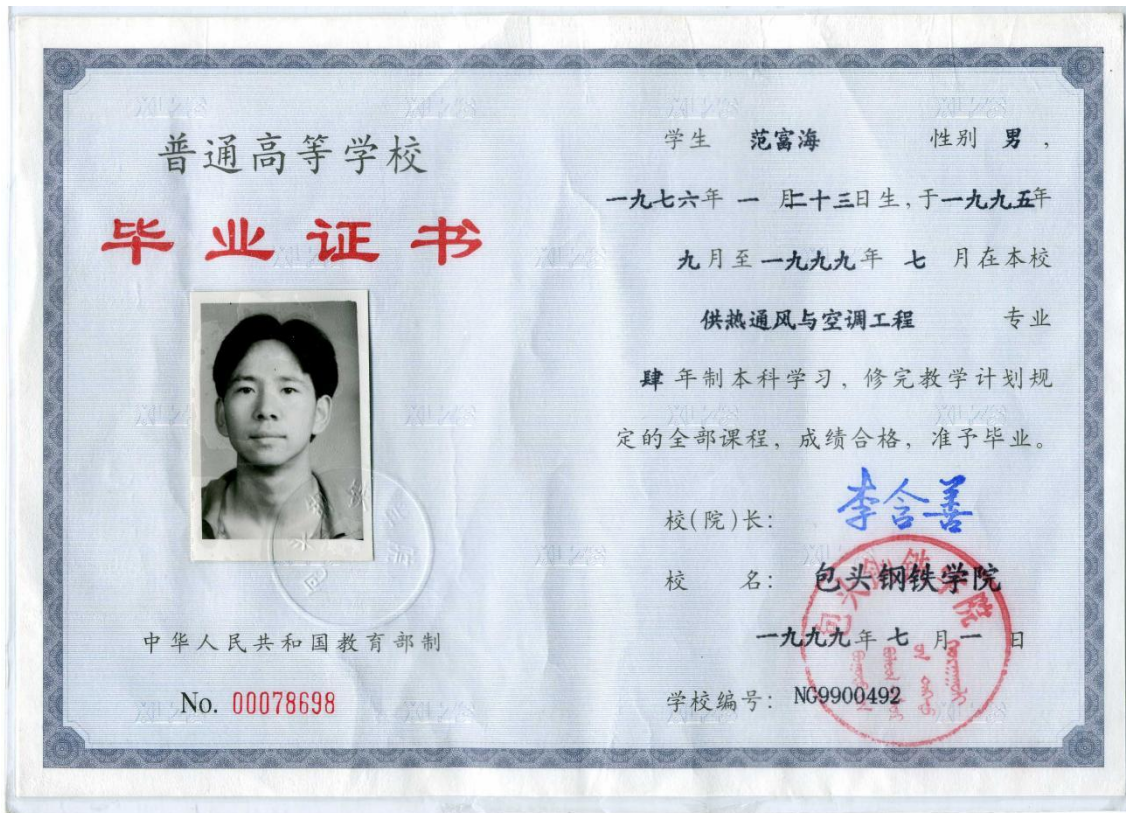 普通高等学校
毕业证书
中华人民共和国教育部制
No. 00078698
学生 范富海 性别 男，
一九七六年 一 月二十三日生，于一九九五年
九月至一九九九年 七 月在本校
供热通风与空调工程 专业
肆 年制本科学习，修完教学计划规
定的全部课程，成绩合格，准予毕业。
校(院)长： 李含善
校 名： 包头钢铁学院
一九九九年 七 月 一 日
学校编号： NG9900492
包头钢铁学院